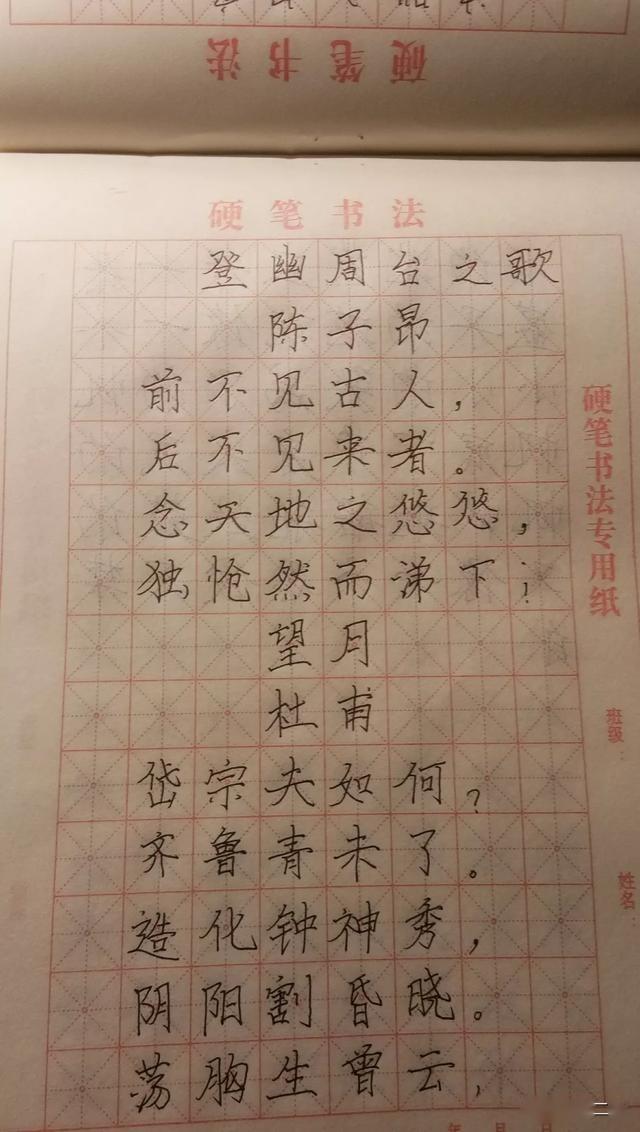 硬笔书法
硬笔书法
登幽周台之歌
陈子昂
前不见古人，
后不见来者。
念天地之悠悠，
独怆然而涕下；
望月
杜甫
岱宗夫如何？
齐鲁青未了。
造化钟神秀，
阴阳割昏晓。
荡胸生曾云，
硬笔书法专用纸
班级：
姓名：
年 月 日
二